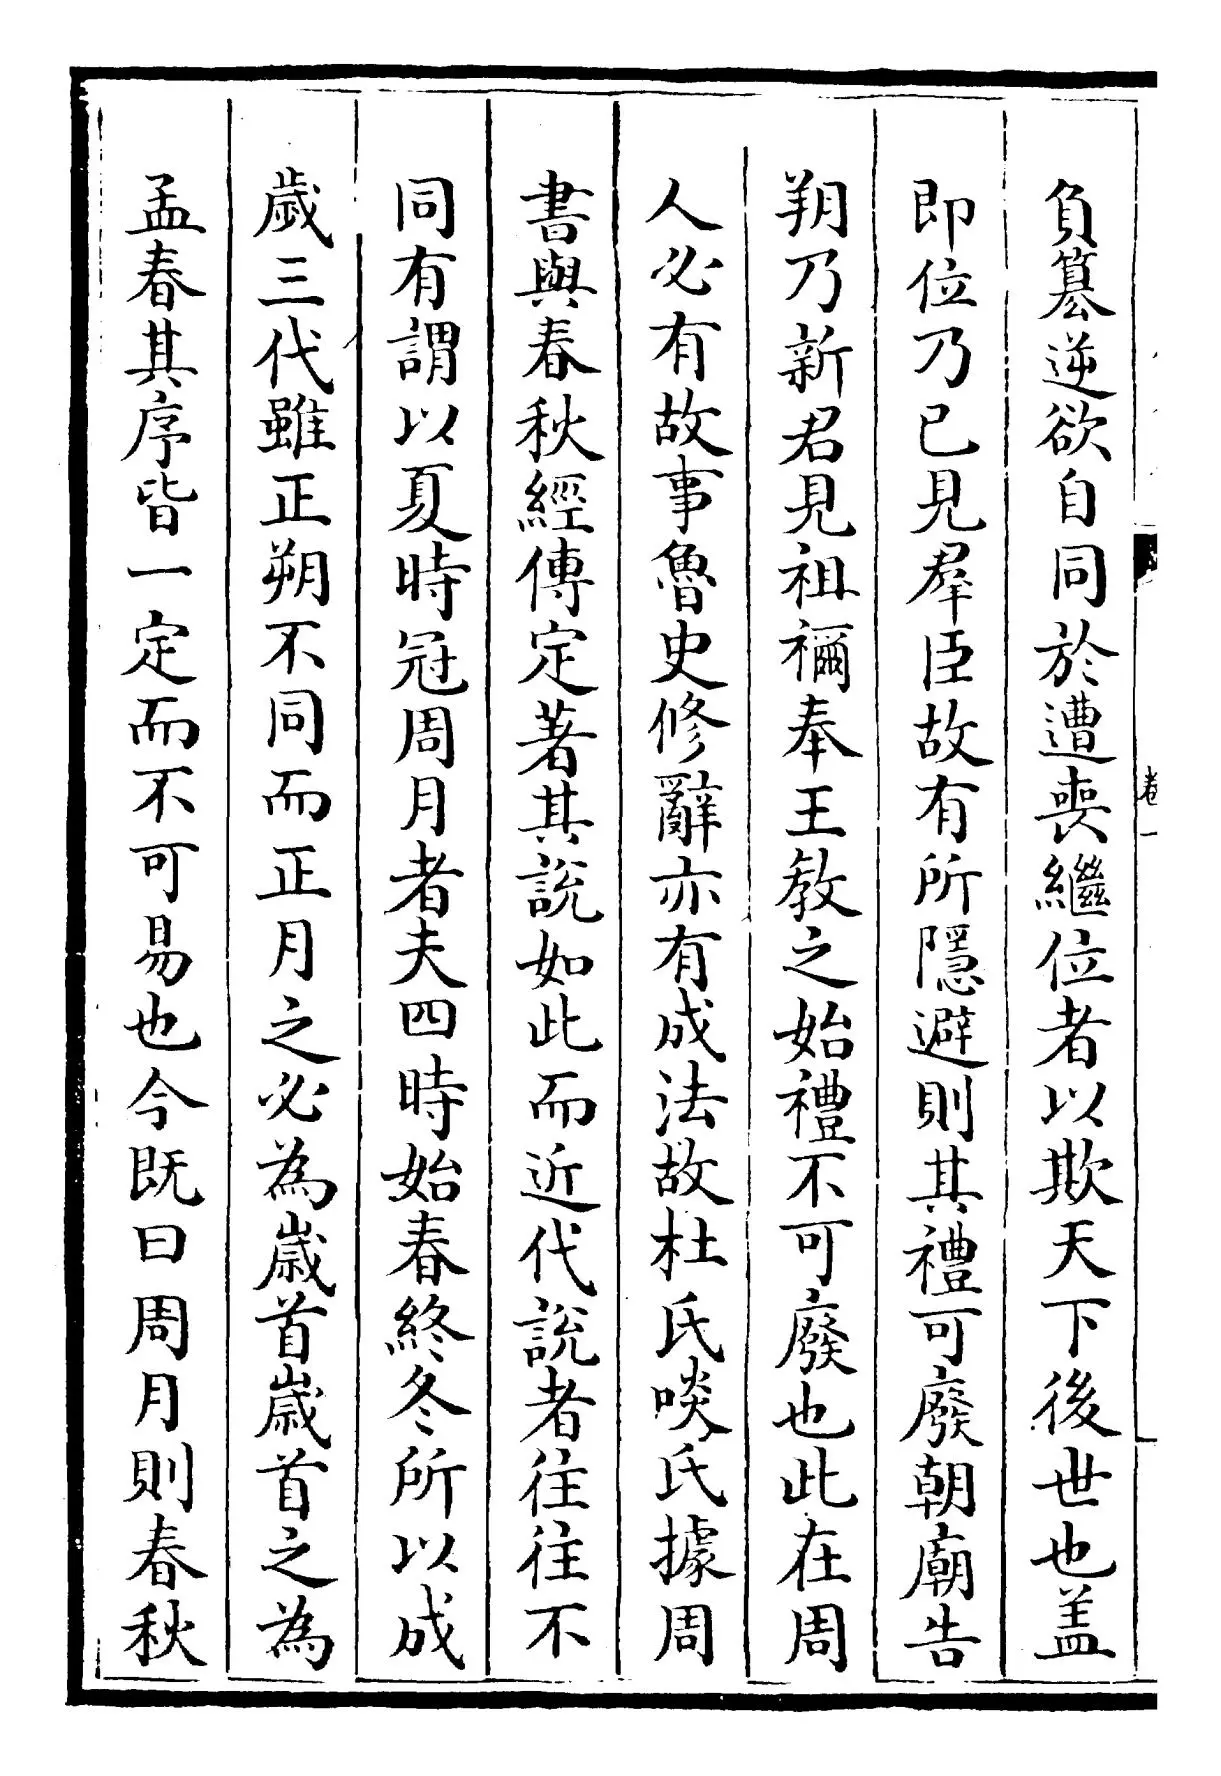 卷一
負簒逆欲自同於遭喪繼位者以欺天下後世也盖
即位乃已見羣臣故有所隱避則其禮可廢朝廟告
朔乃新君見祖禰奉王教之始禮不可廢也此在周
人必有故事魯史修辭亦有成法故杜氏啖氏據周
書與春秋經傳定著其説如此而近代説者往往不
同有謂以夏時冠周月者夫四時始春終冬所以成
歲三代雖正朔不同而正月之必為歲首歲首之為
孟春其序皆一定而不可易也今既曰周月則春秋